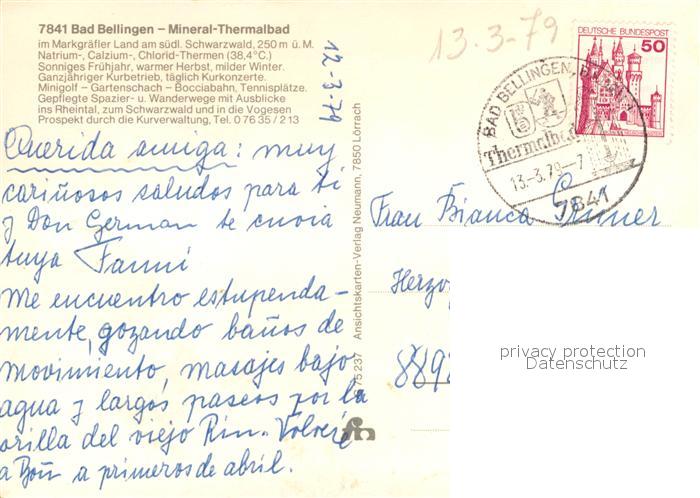 7841 Bad Bellingen – Mineral-Thermalbad
im Markgräfler Land am südl. Schwarzwald, 250 m ü. M.
Natrium-, Calzium-, Chlorid-Thermen (38,4°C.)
Sonniges Frühjahr, warmer Herbst, milder Winter.
Ganzjähriger Kurbetrieb, täglich Kurkonzerte.
Minigolf – Gartenschach – Bocciabahn, Tennisplätze.
Gepflegte Spazier- u. Wanderwege mit Ausblicke
ins Rheintal, zum Schwarzwald und in die Vogesen
Prospekt durch die Kurverwaltung, Tel. 0 76 35 / 213
12-3-79
Querida amiga: muy
cariñosos saludos para ti
y Don German te envia
tuya Fanni
Me encuentro estupenda-
mente, gozando baños de
movimiento, masajes bajo
agua y largos paseos por la
orilla del viejo Rin. Volveré
a Bon a primeros de abril.
75 237 Ansichtskarten-Verlag Neumann, 7850 Lörrach
13.3-79
DEUTSCHE BUNDESPOST
50
BAD BELLINGEN
Thermalbad
13.-3.79.--7
7841
Frau Bianca
Herzo
889
privacy protection
Datenschutz